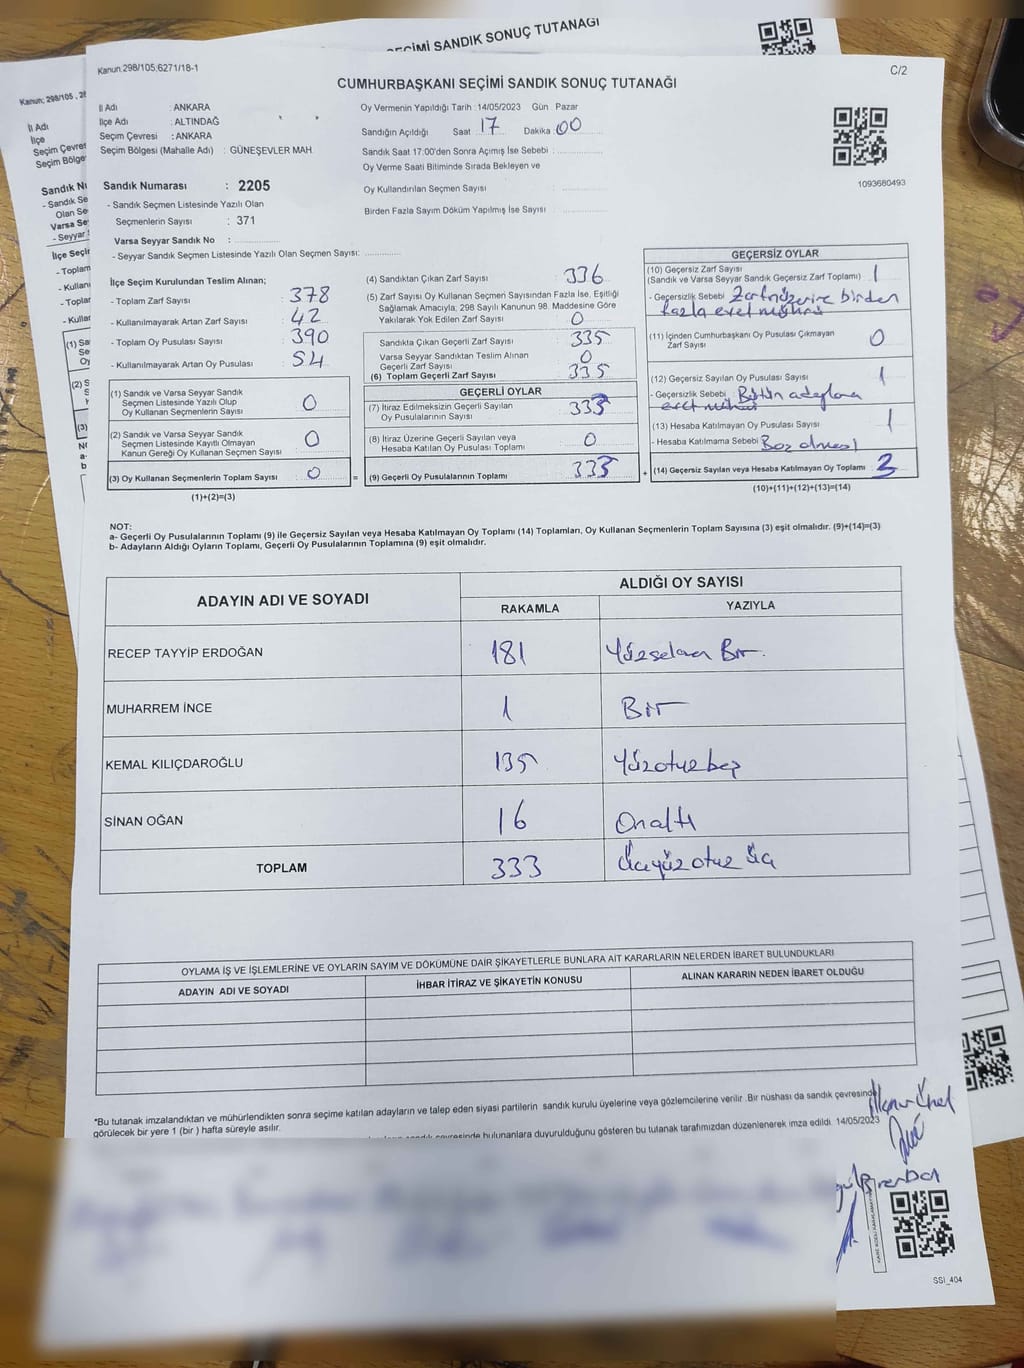 SEÇİMİ SANDIK SONUÇ TUTANAĞI
Kanun:298/105;6271/18-1
C/2
CUMHURBAŞKANI SEÇİMİ SANDIK SONUÇ TUTANAĞI
İl Adı : ANKARA
İlçe Adı : ALTINDAĞ
Seçim Çevresi : ANKARA
Seçim Bölgesi (Mahalle Adı) : GÜNEŞEVLER MAH.
Oy Vermenin Yapıldığı Tarih : 14/05/2023 Gün : Pazar
Sandığın Açıldığı Saat 17 Dakika : 00
Sandık Saat 17:00'den Sonra Açımış İse Sebebi :
Oy Verme Saati Bitiminde Sırada Bekleyen ve
Oy Kullandırılan Seçmen Sayısı :
Birden Fazla Sayım Döküm Yapılmış İse Sayısı :
1093680493
Sandık Numarası : 2205
- Sandık Seçmen Listesinde Yazılı Olan
Seçmenlerin Sayısı : 371
Varsa Seyyar Sandık No :
- Seyyar Sandık Seçmen Listesinde Yazılı Olan Seçmen Sayısı:
İlçe Seçim Kurulundan Teslim Alınan;
- Toplam Zarf Sayısı : 378
- Kullanılmayarak Artan Zarf Sayısı : 42
- Toplam Oy Pusulası Sayısı : 390
- Kullanılmayarak Artan Oy Pusulası : 54
(1) Sandık ve Varsa Seyyar Sandık
Seçmen Listesinde Yazılı Olup
Oy Kullanan Seçmenlerin Sayısı : 0
(2) Sandık ve Varsa Seyyar Sandık
Seçmen Listesinde Kayıtlı Olmayan
Kanun Gereği Oy Kullanan Seçmen Sayısı : 0
(3) Oy Kullanan Seçmenlerin Toplam Sayısı : 0
(1)+(2)=(3)
(4) Sandıktan Çıkan Zarf Sayısı : 336
(5) Zarf Sayısı Oy Kullanan Seçmen Sayısından Fazla İse, Eşitliği
Sağlamak Amacıyla, 298 Sayılı Kanunun 98. Maddesine Göre
Yakılarak Yok Edilen Zarf Sayısı : 0
Sandıkta Çıkan Geçerli Zarf Sayısı : 335
Varsa Seyyar Sandıktan Teslim Alınan
Geçerli Zarf Sayısı : 0
(6) Toplam Geçerli Zarf Sayısı : 335
GEÇERLİ OYLAR
(7) İtiraz Edilmeksizin Geçerli Sayılan
Oy Pusulalarının Sayısı : 333
(8) İtiraz Üzerine Geçerli Sayılan veya
Hesaba Katılan Oy Pusulalarının Toplamı : 0
(9) Geçerli Oy Pusulalarının Toplamı : 333
GEÇERSİZ OYLAR
(10) Geçersiz Zarf Sayısı
(Sandık ve Varsa Seyyar Sandık Geçersiz Zarf Toplamı) : 1
- Geçersizlik Sebebi : Zarfın üzerine birden
fazla evet mührü
(11) İçinden Cumhurbaşkanı Oy Pusulası Çıkmayan
Zarf Sayısı : 0
(12) Geçersiz Sayılan Oy Pusulası Sayısı : 1
- Geçersizlik Sebebi : Bütün adaylara
evet mührü
(13) Hesaba Katılmayan Oy Pusulası Sayısı : 1
- Hesaba Katılmama Sebebi : Boş olması
(14) Geçersiz Sayılan veya Hesaba Katılmayan Oy Toplamı : 3
(10)+(11)+(12)+(13)=(14)
NOT:
a- Geçerli Oy Pusulalarının Toplamı (9) ile Geçersiz Sayılan veya Hesaba Katılmayan Oy Toplamı (14) Toplamları, Oy Kullanan Seçmenlerin Toplam Sayısına (3) eşit olmalıdır. (9)+(14)=(3)
b- Adayların Aldığı Oyların Toplamı, Geçerli Oy Pusulalarının Toplamına (9) eşit olmalıdır.
ADAYIN ADI VE SOYADI
ALDIĞI OY SAYISI
RAKAMLA YAZIYLA
RECEP TAYYİP ERDOĞAN 181 Yüzseksen Bir.
MUHARREM İNCE 1 Bir
KEMAL KILIÇDAROĞLU 135 Yüzotuzbeş
SİNAN OĞAN 16 Onaltı
TOPLAM 333 Üçyüz otuz üç
OYLAMA İŞ VE İŞLEMLERİNE VE OYLARIN SAYIM VE DÖKÜMÜNE DAİR ŞİKAYETLERLE BUNLARA AİT KARARLARIN NELERDEN İBARET BULUNDUKLARI
ADAYIN ADI VE SOYADI İHBAR İTİRAZ VE ŞİKAYETİN KONUSU ALINAN KARARIN NEDEN İBARET OLDUĞU
*Bu tutanak imzalandıktan ve mühürlendikten sonra seçime katılan adayların ve talep eden siyasi partilerin sandık kurulu üyelerine veya gözlemcilerine verilir. Bir nüshası da sandık çevresinde
görülecek bir yere 1 (bir) hafta süreyle asılır.
çevresinde bulunanlara duyurulduğunu gösteren bu tutanak tarafımızdan düzenlenerek imza edildi. 14/05/2023
SSI_404